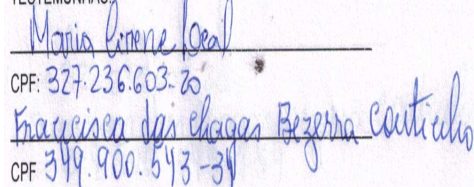 TESTEMUNHAS:
Maria Cirene Leal
CPF: 327.236.603-20
Francisca das Chagas Bezerra Coutinho
CPF 349.900.543-34